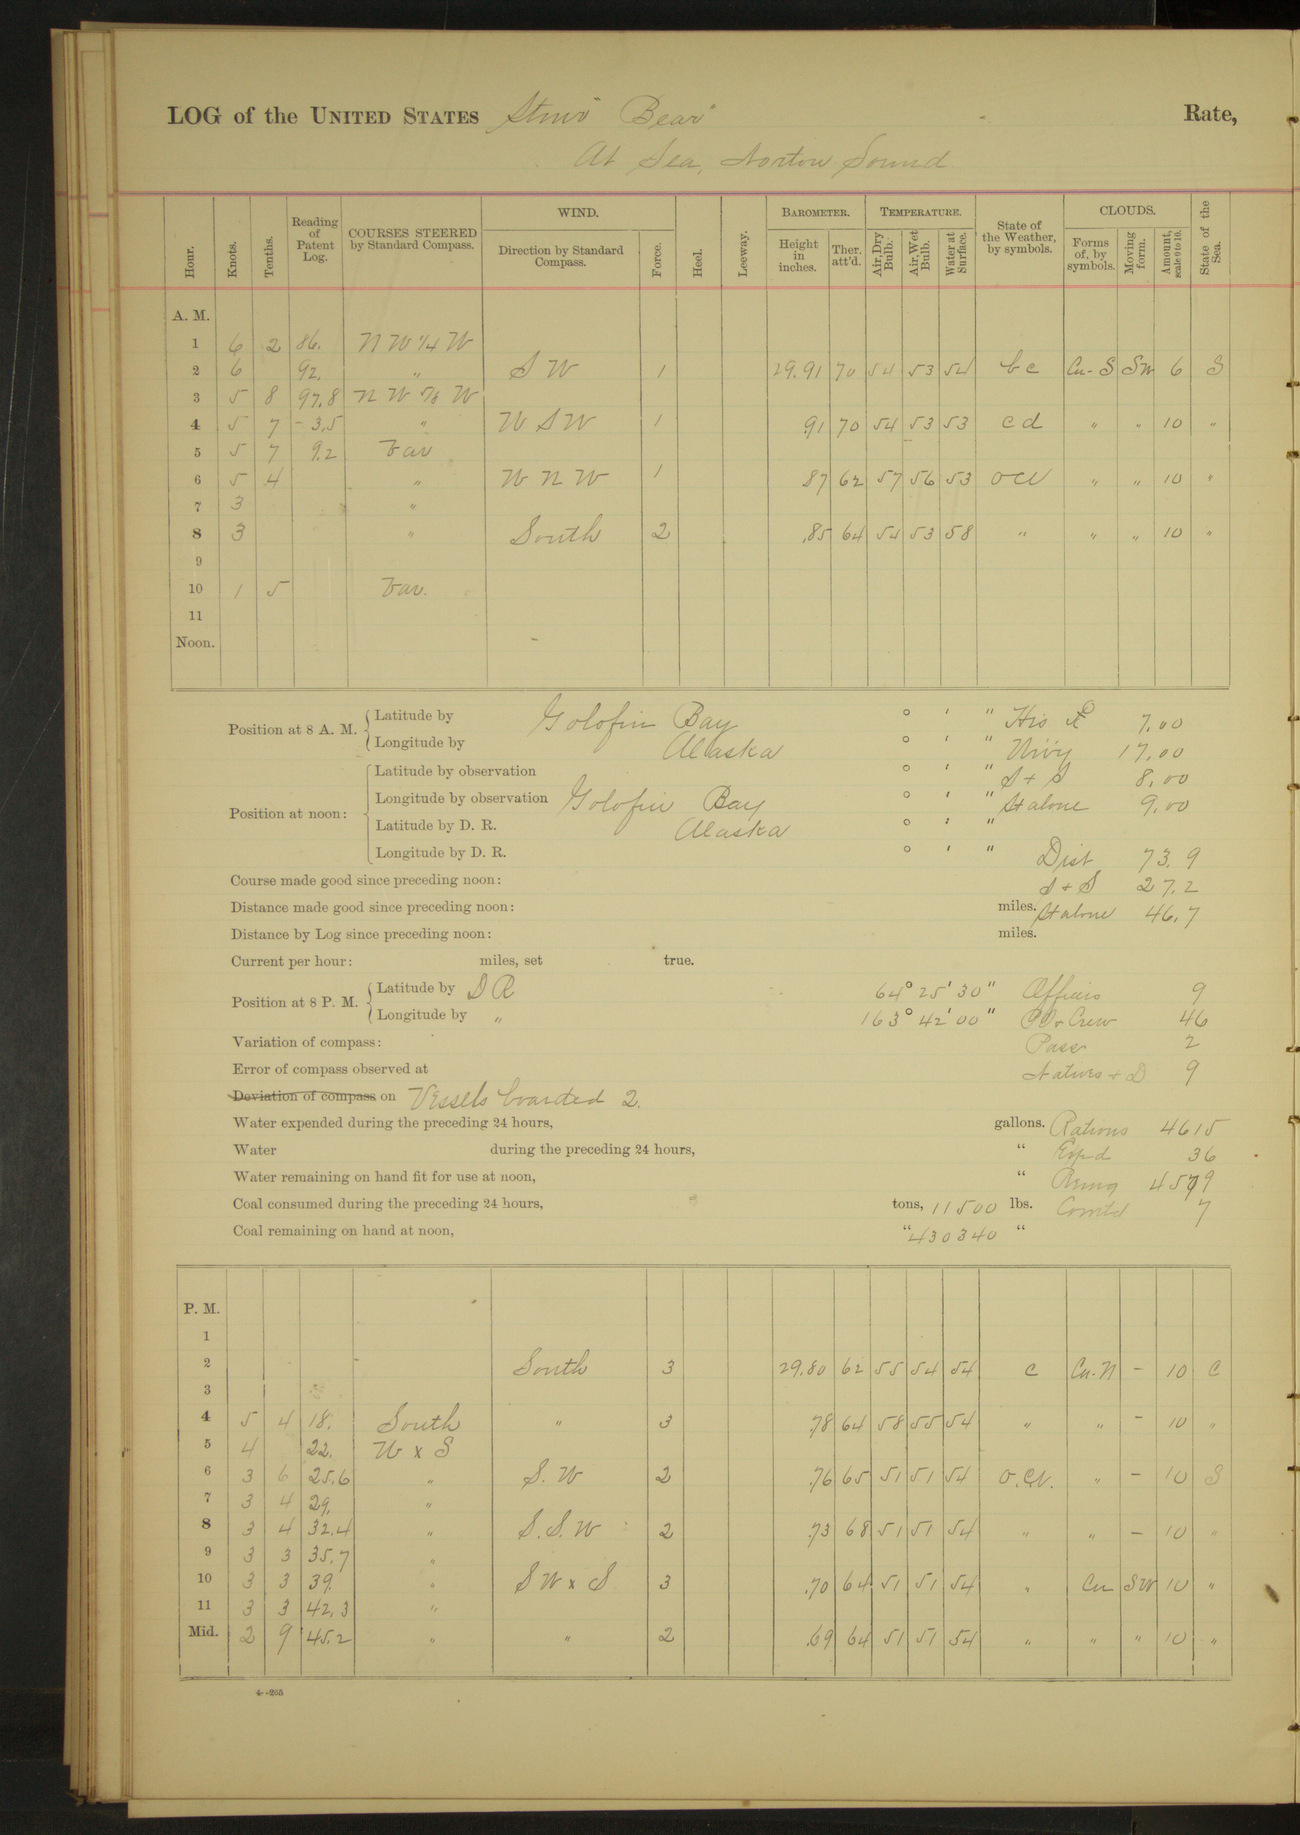 LOG of the UNITED STATES Stmr "Bear" Rate,
At Sea, Norton Sound
Hour. Knots. Tenths. Reading of Patent Log. COURSES STEERED by Standard Compass. WIND. Direction by Standard Compass. Force. Heel. Leeway. BAROMETER. Height in inches. Ther. att'd. TEMPERATURE. Air, Dry Bulb. Air, Wet Bulb. Water at Surface. State of the Weather, by symbols. CLOUDS. Forms of, by symbols. Moving form. Amount, scale 0 to 10. State of the Sea.
A. M.
1 6 2 86. N W 1/4 W
2 6 92. " S W 1 29.91 70 54 53 52 b c Cu-S SW 6 S
3 5 8 97.8 N W 7/8 W
4 5 7 - 3.5 " W S W 1 .91 70 54 53 53 c d " " 10 "
5 5 7 9.2 Var
6 5 4 " W N W 1 87 62 57 56 53 o c u " " 10 "
7 3 "
8 3 " South 2 .85 64 54 53 58 " " " 10 "
9
10 1 5 Var.
11
Noon.
Position at 8 A. M. Latitude by Golofin Bay ° ' " 7.00
Longitude by Alaska ° ' " 17.00
Position at noon: Latitude by observation ° ' " S + S 8.00
Longitude by observation Golofin Bay ° ' " St alone 9.00
Latitude by D. R. Alaska ° ' "
Longitude by D. R. ° ' " Dist 73.9
Course made good since preceding noon: S + S 27.2
Distance made good since preceding noon: miles. St alone 46.7
Distance by Log since preceding noon: miles.
Current per hour: miles, set true.
Position at 8 P. M. Latitude by D R 64° 25' 30" Officers 9
Longitude by " 163° 42' 00" PO + Crew 46
Variation of compass: Pass 2
Error of compass observed at Natives + D 9
Deviation of compass on Vessels boarded 2.
Water expended during the preceding 24 hours, gallons. Rations 4615
Water during the preceding 24 hours, " Exp'd 36
Water remaining on hand fit for use at noon, " Remg 4579
Coal consumed during the preceding 24 hours, tons, 11500 lbs. Comtd 7
Coal remaining on hand at noon, " 430340 "
P. M.
1
2 South 3 29.80 62 55 54 54 c Cu-N - 10 C
3
4 5 4 18. South " 3 .78 64 58 55 54 " " - 10 "
5 4 22. W x S
6 3 6 25.6 " S. W 2 .76 65 51 51 54 o.c.u. " - 10 S
7 3 4 29. "
8 3 4 32.4 " S. S. W 2 .73 68 51 51 54 " " - 10 "
9 3 3 35.7 "
10 3 3 39. " S W x S 3 .70 64 51 51 54 " Cu SW 10 "
11 3 3 42.3 "
Mid. 2 9 45.2 " " 2 .69 64 51 51 54 " " " 10 "
4--265